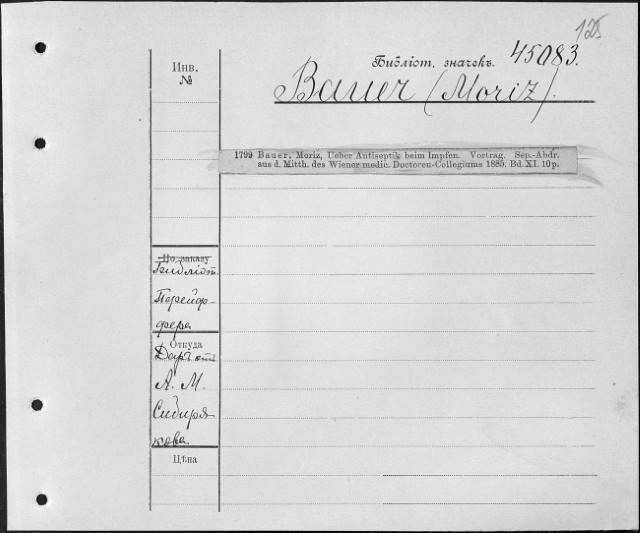 125
Библіот. значекъ. 45083.
Инв.
№
Bauer (Moriz).
1799 Bauer, Moriz, Ueber Antiseptik beim Impfen. Vortrag. Sep.-Abdr.
aus d. Mitth. des Wiener medic. Doctoren-Collegiums 1885, Bd. XI. 10 p.
По заказу
Библіот.
Перейф-
фера
Откуда
Даръ отъ
А. М.
Сибиря
кова
Цѣна